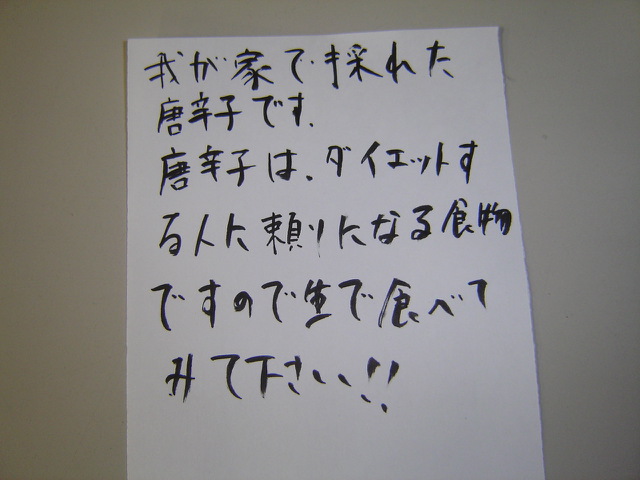 我が家で採れた
唐辛子です.
唐辛子は、ダイエットす
る人に頼りになる食物
ですので生で食べて
みて下さい!!